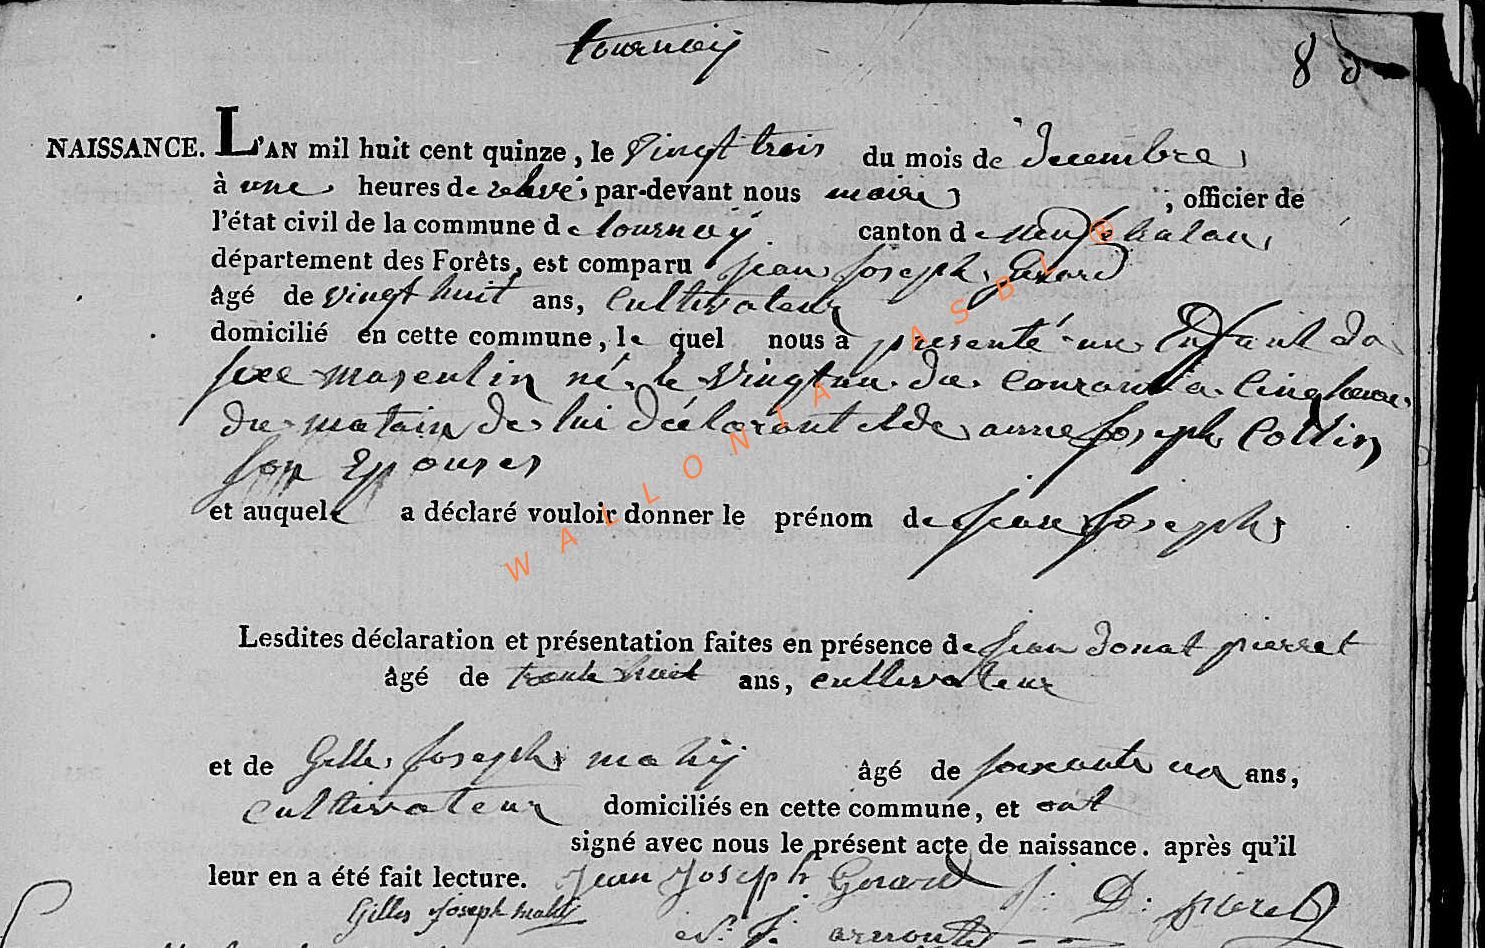 tournay
8
NAISSANCE. L'AN mil huit cent quinze, le vingt trois du mois de decembre,
à une heures de relevé, par-devant nous maire, officier de
l'état civil de la commune de tournay canton de neufchatau,
département des Forêts, est comparu jean joseph Gerard
âgé de vingt huit ans, Cultivateur
domicilié en cette commune, le quel nous a presenté un Enfant du
sexe masculin né le vingt un du courant a Cinq heure
du matin de lui déclarant et de anne joseph Collin
son Epouse,
et auquel a déclaré vouloir donner le prénom de jean joseph,
Lesdites déclaration et présentation faites en présence de jean donat pierret
âgé de trente huit ans, cultivateur
et de Gille joseph mahy âgé de soixante un ans,
cultivateur domiciliés en cette commune, et ont
signé avec nous le présent acte de naissance. après qu'il
leur en a été fait lecture. Jean Joseph Gerard J: D: pieret
Gilles joseph mahy
WALLONIA ASBL